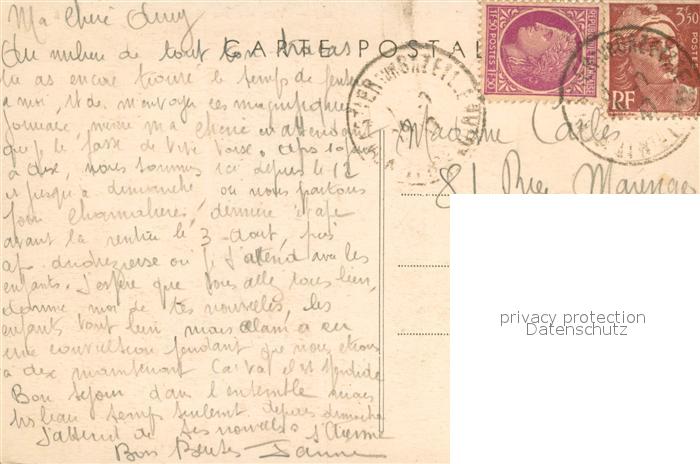 CARTE POSTALE
1F50 POSTES 1F50
REPUBLIQUE FRANÇAISE
3F50
RF
Ma chère Amy
Au milieu de tout ton tracas
tu as encore trouvé le temps de penser
à moi, et de m'envoyer ces magnifiques
journaux, merci ma chérie en attendant
que je le fasse de vive voix.
à dix, nous sommes ici depuis le 12
et jusqu'à dimanche, où nous partons
pour Chamalières, dernière étape
avant la rentrée le 3 Août, puis
où j'attend avec les
enfants. J'espère que vous allez tous bien,
donne moi de tes nouvelles, les
enfants vont bien mais Alain a eu
une convulsion pendant que nous étions
à dix maintenant ça va il est splendide
Bon séjour dans l'ensemble mais
beau temps seulement depuis dimanche
J'attend de tes nouvelles
Bons Baisers
Madame Carles
81 Rue Marengo
privacy protection
Datenschutz